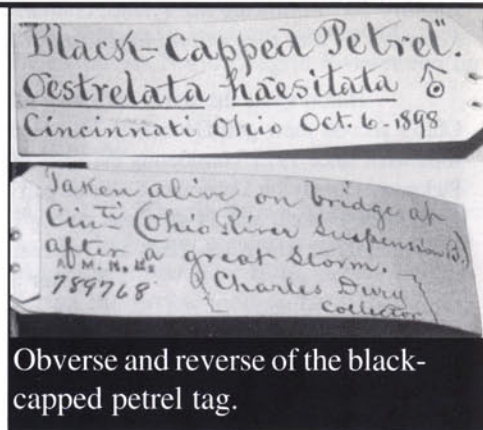 "Black-Capped Petrel".
Oestrelata haesitata ♂
Cincinnati Ohio Oct. 6-1898
Taken alive on bridge at
Cin ti (Ohio River Suspension B.)
after a great Storm.
A. M. N. H.
789768 Charles Dury
Collector
Obverse and reverse of the black-
capped petrel tag.